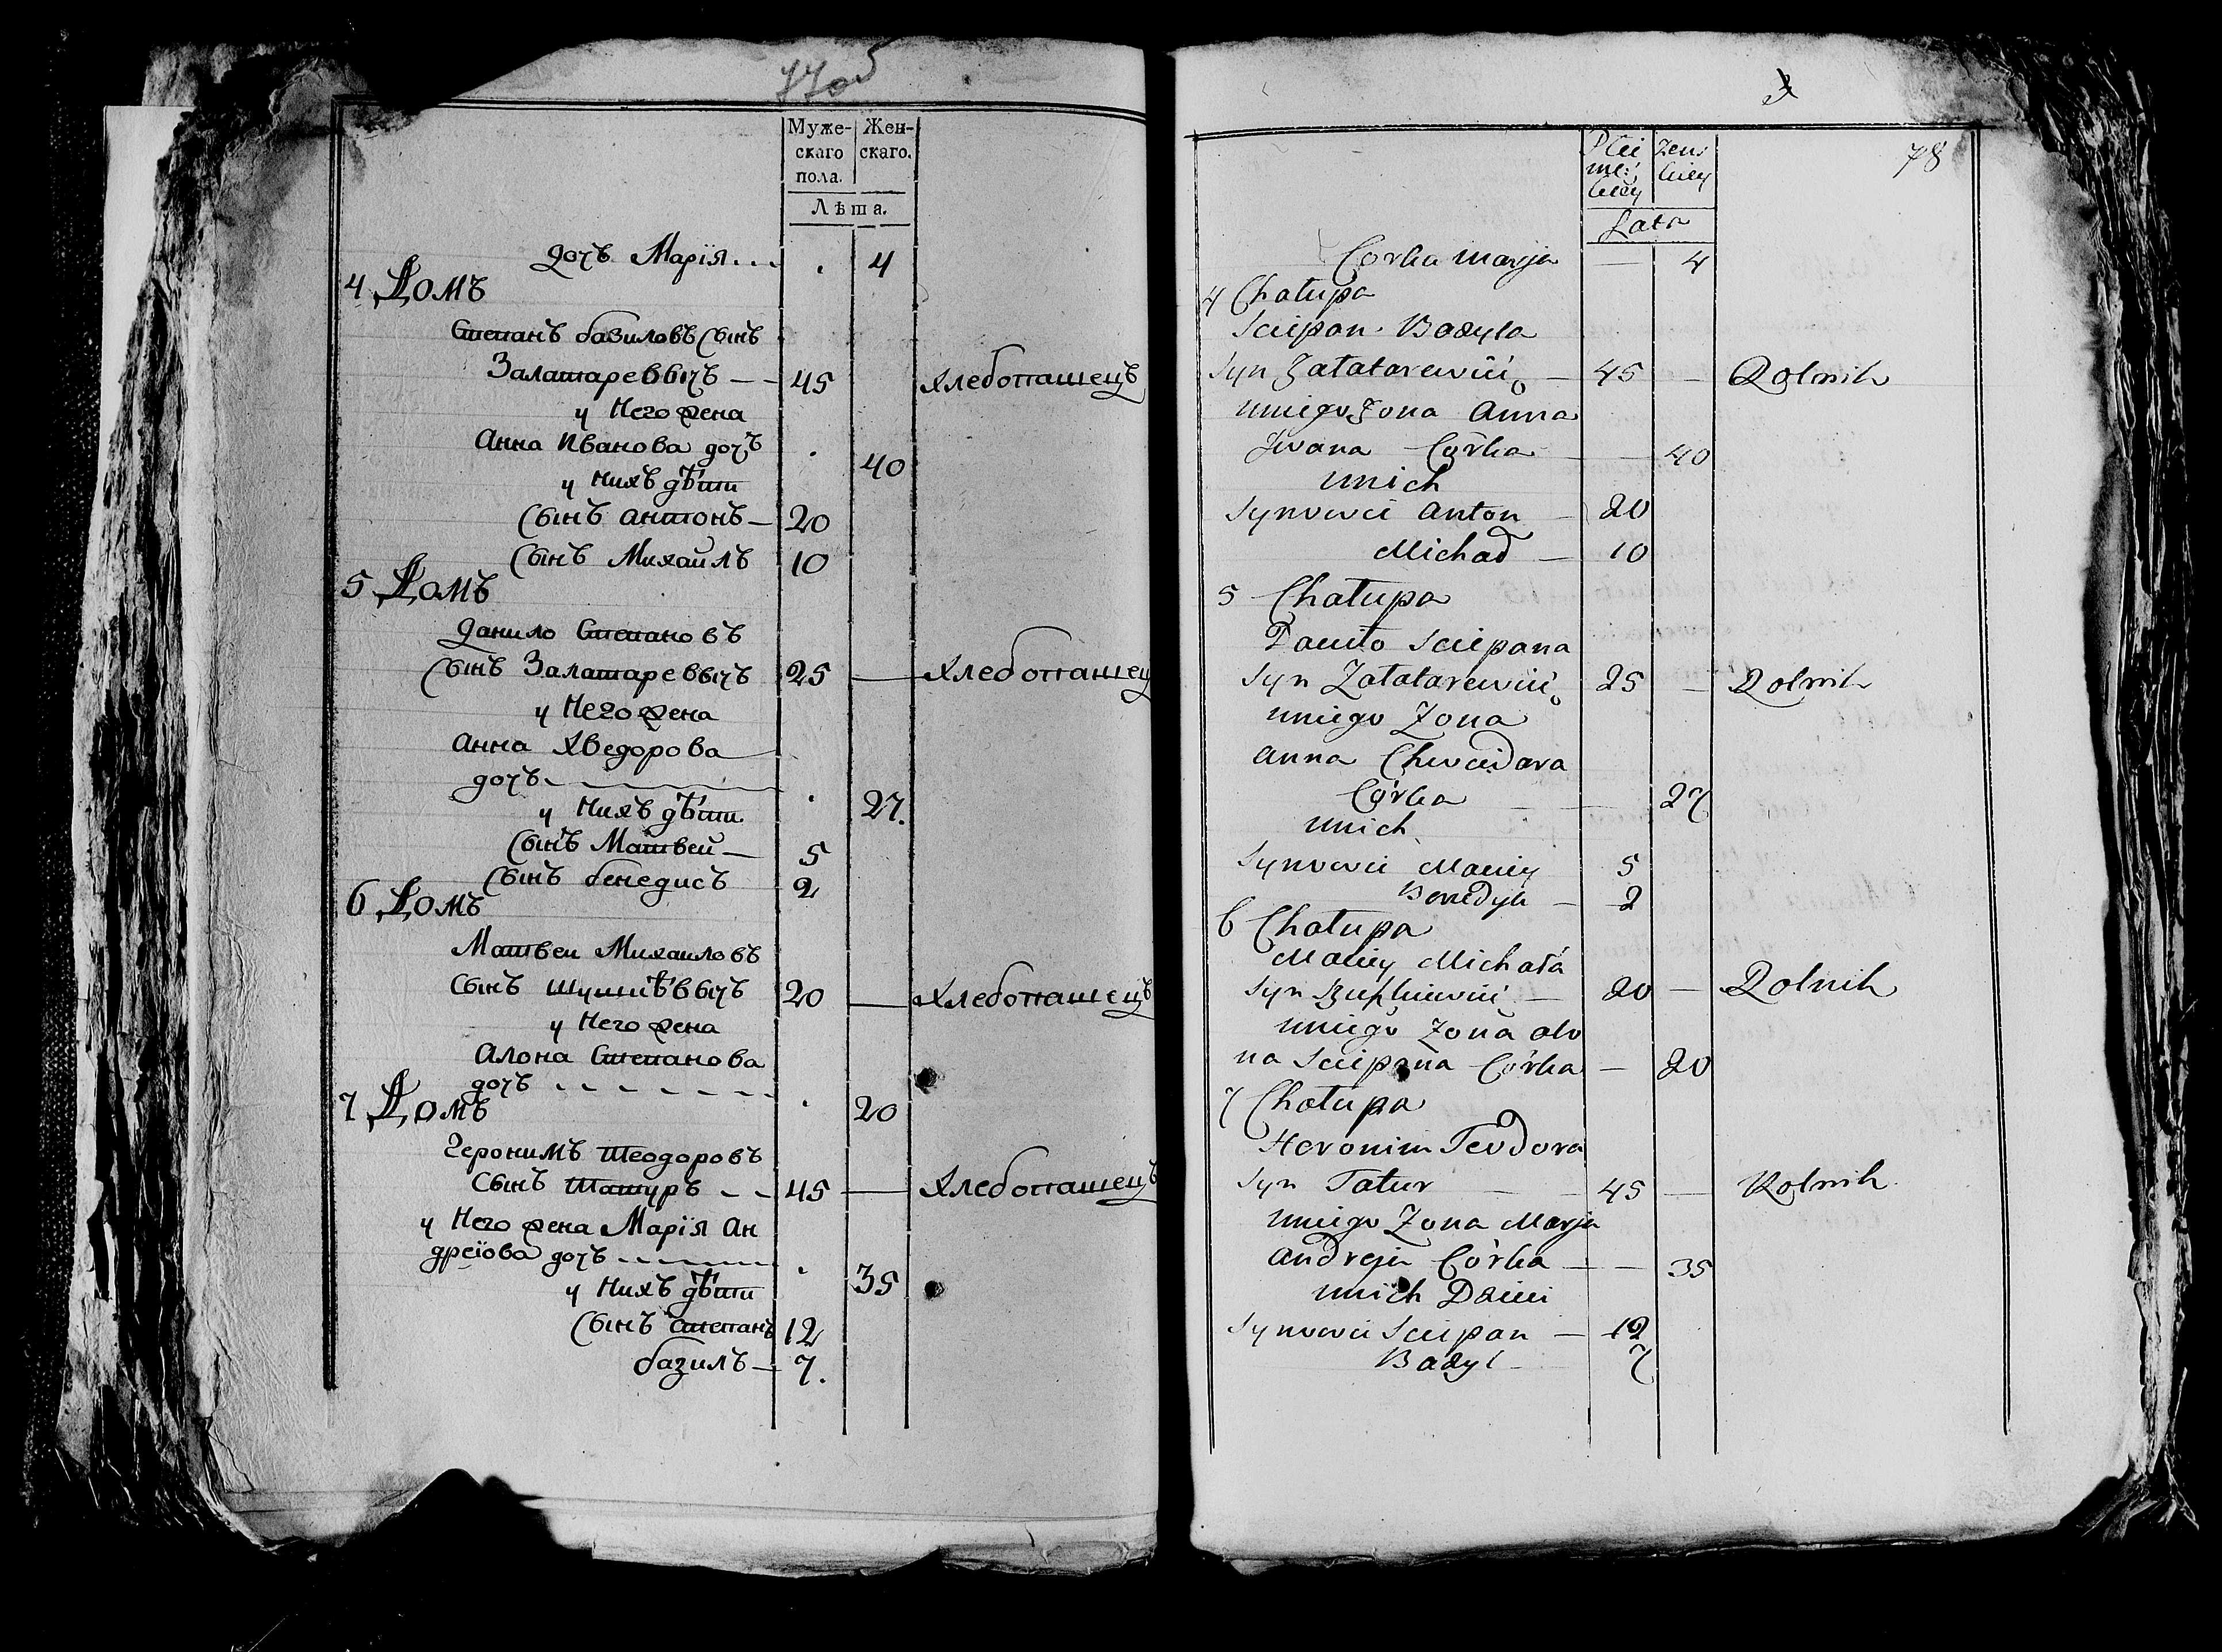 77об
Муже- Жен-
скаго скаго.
пола.
Лѣта.
дочъ Марія . . . 4
4 Домъ
Степанъ базиловъ сынъ
Залатаревичъ – – 45 хлебопашецъ
у Него жена
Анна Иванова дочъ 40
у Нихъ дѣти
Сынъ антонъ – 20
Сынъ Михаилъ 10
5 Домъ
Данило Степановъ
Сынъ Залатаревичъ 25 — хлебопашец
у Него жена
Анна Хведорова
дочъ 27.
у Нихъ дѣти
Сынъ Матвей – 5
Сынъ бенедисъ 2
6 Домъ
Матвеи Михаиловъ
Сынъ 20 — хлебопашецъ
у Него жена
Алона Степанова
дочъ 20
7 Домъ
Геронимъ Теодоровъ
Сынъ Татуръ – – 45 — хлебопашецъ
у Него жена Марія Ан
дреіова дочъ 35
у Нихъ дѣти
Сынъ Степанъ 12
базилъ – 7.
3
78
Płci Żeń
mę: skiey
skiey
Lata
Corka Marja — 4
4 Chałupa
Sciepan Bazyla
Syn Załatarewicz — 45 — Rolnik
uniego Żona Anna
Jwana Córka — 40
unich
Synowie Anton — 20
Michał — 10
5 Chałupa
Daniło Sciepana
Syn Załatarewicz 25 — Rolnik
uniego Żona
Anna Chwiedora
Córka — 27
unich
Synowie Maciey 5
Benedyk — 2
6 Chałupa
Maciey Michała
Syn — 20 — Rolnik
uniego Żona Alo
na Sciepana Córka — 20
7 Chałupa
Heronim Teodora
Syn Tatur — 45 — Rolnik
uniego Żona Marja
Andreja Córka — 35
unich Dzieci
Synowie Sciepan — 12
Bazyl – 7